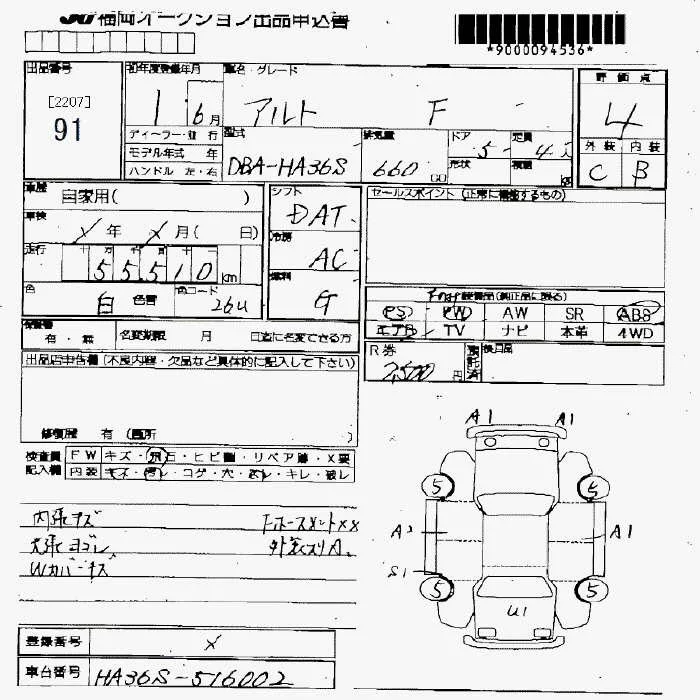 JU 福岡オークション出品申込書
*9000094536*
出品番号 初年度登録年月 車名・グレード 評価点
[2207]
91
1 6月 アルト F 4
ディーラー・並行 型式 排気量 ドア 5 定員 4 外装 内装
モデル年式 年 DBA-HA36S 660 CC 形状 積載 kg C B
ハンドル 左・右
車歴 自家用( ) シフト セールスポイント(正常に機能するもの)
DAT
車検 X年 X月( 日) 冷房
走行 十万千百十一 AC
55510 km 燃料
色 白 色替 色コード 26U G
装備品(純正品に限る)
PS PW AW SR ABS
エアB TV ナビ 本革 4WD
保証書 有・無 名変期限 月 日迄に名変できる方
出品店申告欄(不良内容・欠品など具体的に記入して下さい) R券 預託済 検目品
円
修復歴 有 (箇所 )
検査員 FW キズ・飛石・ヒビ・リペア跡・X要
記入欄 内装 キズ・汚レ・コゲ・穴・キレ・破レ
A1 A1
5 5
A1
S1
5 5
U1
内張キズ
天張ヨゴレ
Wカバーキズ
登録番号 X
車台番号 HA36S-516002